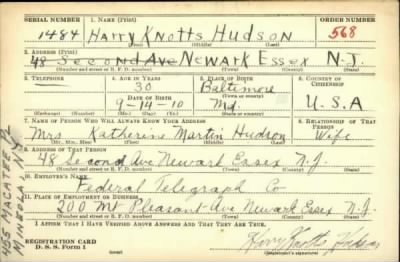 SERIAL NUMBER 1. NAME (Print) ORDER NUMBER
1484 HARRY KNOTTS HUDSON 568
(First) (Middle) (Last)
2. ADDRESS (Print)
48 Second Ave NEWARK ESSEX N.J.
(Number and street or R. F. D. number) (Town) (County) (State)
3. TELEPHONE 4. AGE IN YEARS 5. PLACE OF BIRTH 6. COUNTRY OF CITIZENSHIP
30 Baltimore
(Town or county)
DATE OF BIRTH
9-14-10 Md. U.S.A
(Exchange) (Number) (Mo.) (Day) (Yr.) (State or country)
7. NAME OF PERSON WHO WILL ALWAYS KNOW YOUR ADDRESS 8. RELATIONSHIP OF THAT PERSON
Mrs Katherine Martin Hudson Wife
(Mr., Mrs., Miss) (First) (Middle) (Last)
9. ADDRESS OF THAT PERSON
48 Second Ave Newark Essex N.J.
(Number and street or R. F. D. number) (Town) (County) (State)
10. EMPLOYER'S NAME
Federal Telegraph Co
11. PLACE OF EMPLOYMENT OR BUSINESS
200 Mt Pleasant Ave Newark Essex N.J.
(Number and street or R. F. D. number) (Town) (County) (State)
I AFFIRM THAT I HAVE VERIFIED ABOVE ANSWERS AND THAT THEY ARE TRUE.
REGISTRATION CARD
D. S. S. Form 1
Harry Knotts Hudson
(Registrant's signature)
MINEOLA N.Y.